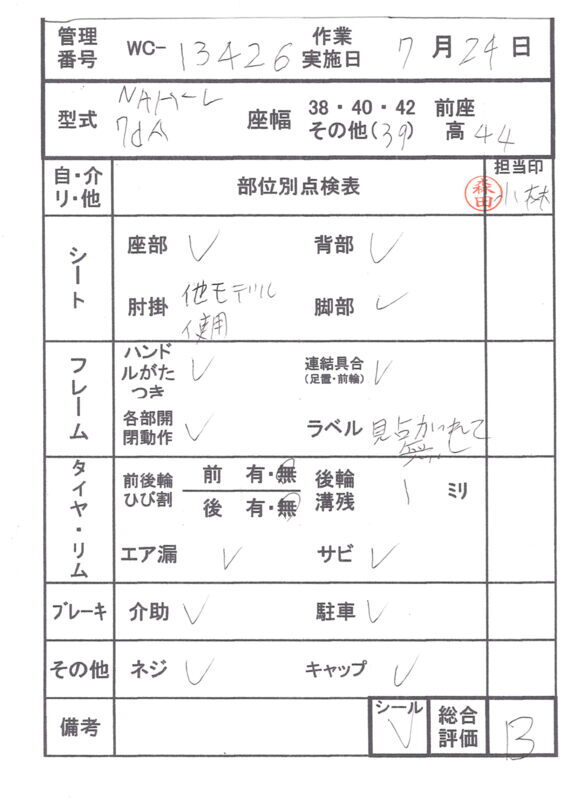 管理番号 WC-13426 作業実施日 7月24日
型式 座幅 38・40・42 その他(39) 前座高 44
自・介リ・他 部位別点検表 担当印 森田 小林
シート 座部 ✓ 背部 ✓
肘掛 他モデル使用 脚部 ✓
フレーム ハンドルがたつき ✓ 連結具合(足置・前輪) ✓
各部開閉動作 ✓ ラベル
タイヤ・リム 前後輪ひび割 前 有・無 後輪溝残 1 ミリ
後 有・無
エア漏 ✓ サビ ✓
ブレーキ 介助 ✓ 駐車 ✓
その他 ネジ ✓ キャップ ✓
備考 シール ✓ 総合評価 B